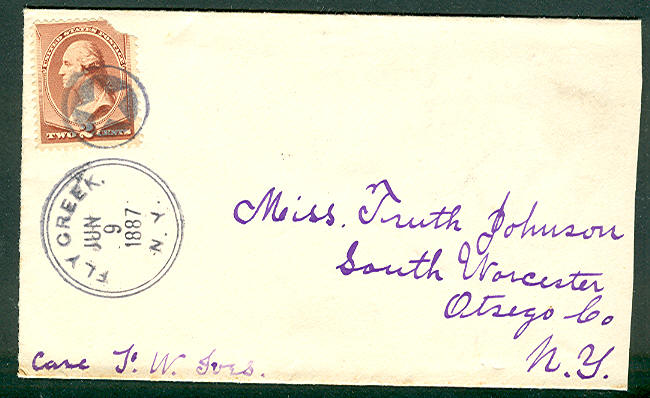 UNITED STATES POSTAGE
TWO 2 CENTS
FLY CREEK. N.Y.
JUN
9
1887
Miss. Truth Johnson
South Worcester
Otsego Co
N.Y.
Care T. W. Ives.